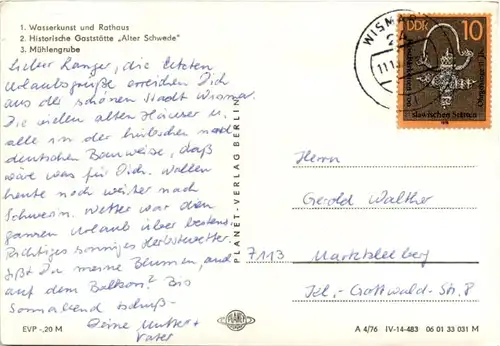 1. Wasserkunst und Rathaus
2. Historische Gaststätte „Alter Schwede"
3. Mühlengrube
Lieber Langer, die letzten
Urlaubsgrüße erreichen Dich
aus der schönen Stadt Wismar.
Die vielen alten Häuser u.
alle in der hübschen nord
deutschen Bauweise, daß
wäre was für Dich. Wollen
heute noch weiter nach
Schwerin. Wetter war den
ganzen Urlaub über bestens
Richtiges sonniges Herbstwetter
Gießt Du meine Blumen, auch
auf dem Balkon? Bis
Sonnabend tschüß-
Deine Mutter +
Vater
EVP -,20 M
PLANET-VERLAG BERLIN
PLANET
WISMAR
24
11.1
DDR
10
slawischen Stämmen
Herrn
Gerold Walther
7113 Markkleeberg
Kl.-Gottwald-Str. 8
A 4/76 IV-14-483 06 01 33 031 M